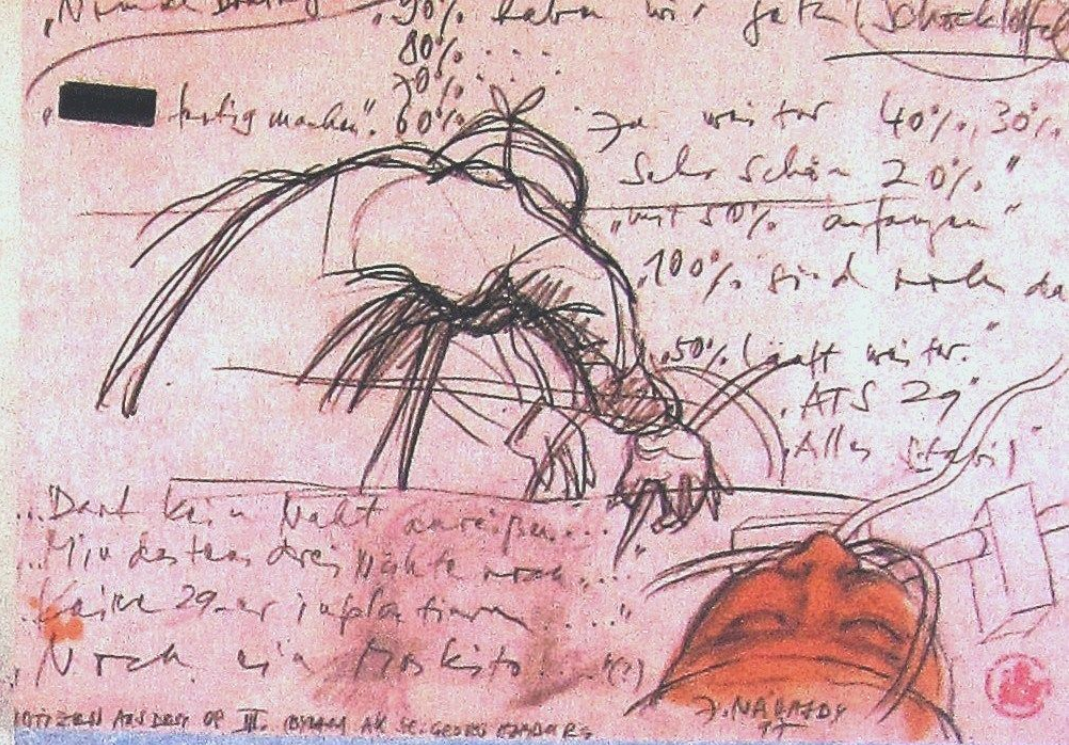 90% haben wir
80% ....
70% ....
" fertig machen". 60% Ja weiter 40%, 30%,
Sehr schön 20%."
"mit 50% anfangen"
"100% sind noch da
"50% läuft weiter."
"ATS 29"
"Alles stabil"
"...Darf kein Naht anreißen...
...Mindestens drei Nähte noch...."
Keine 29-er implantieren ...."
"Noch ein Moskito ..."(?)
NOTIZEN AUS DEM OP III. AK ST. GEORG HAMBURG